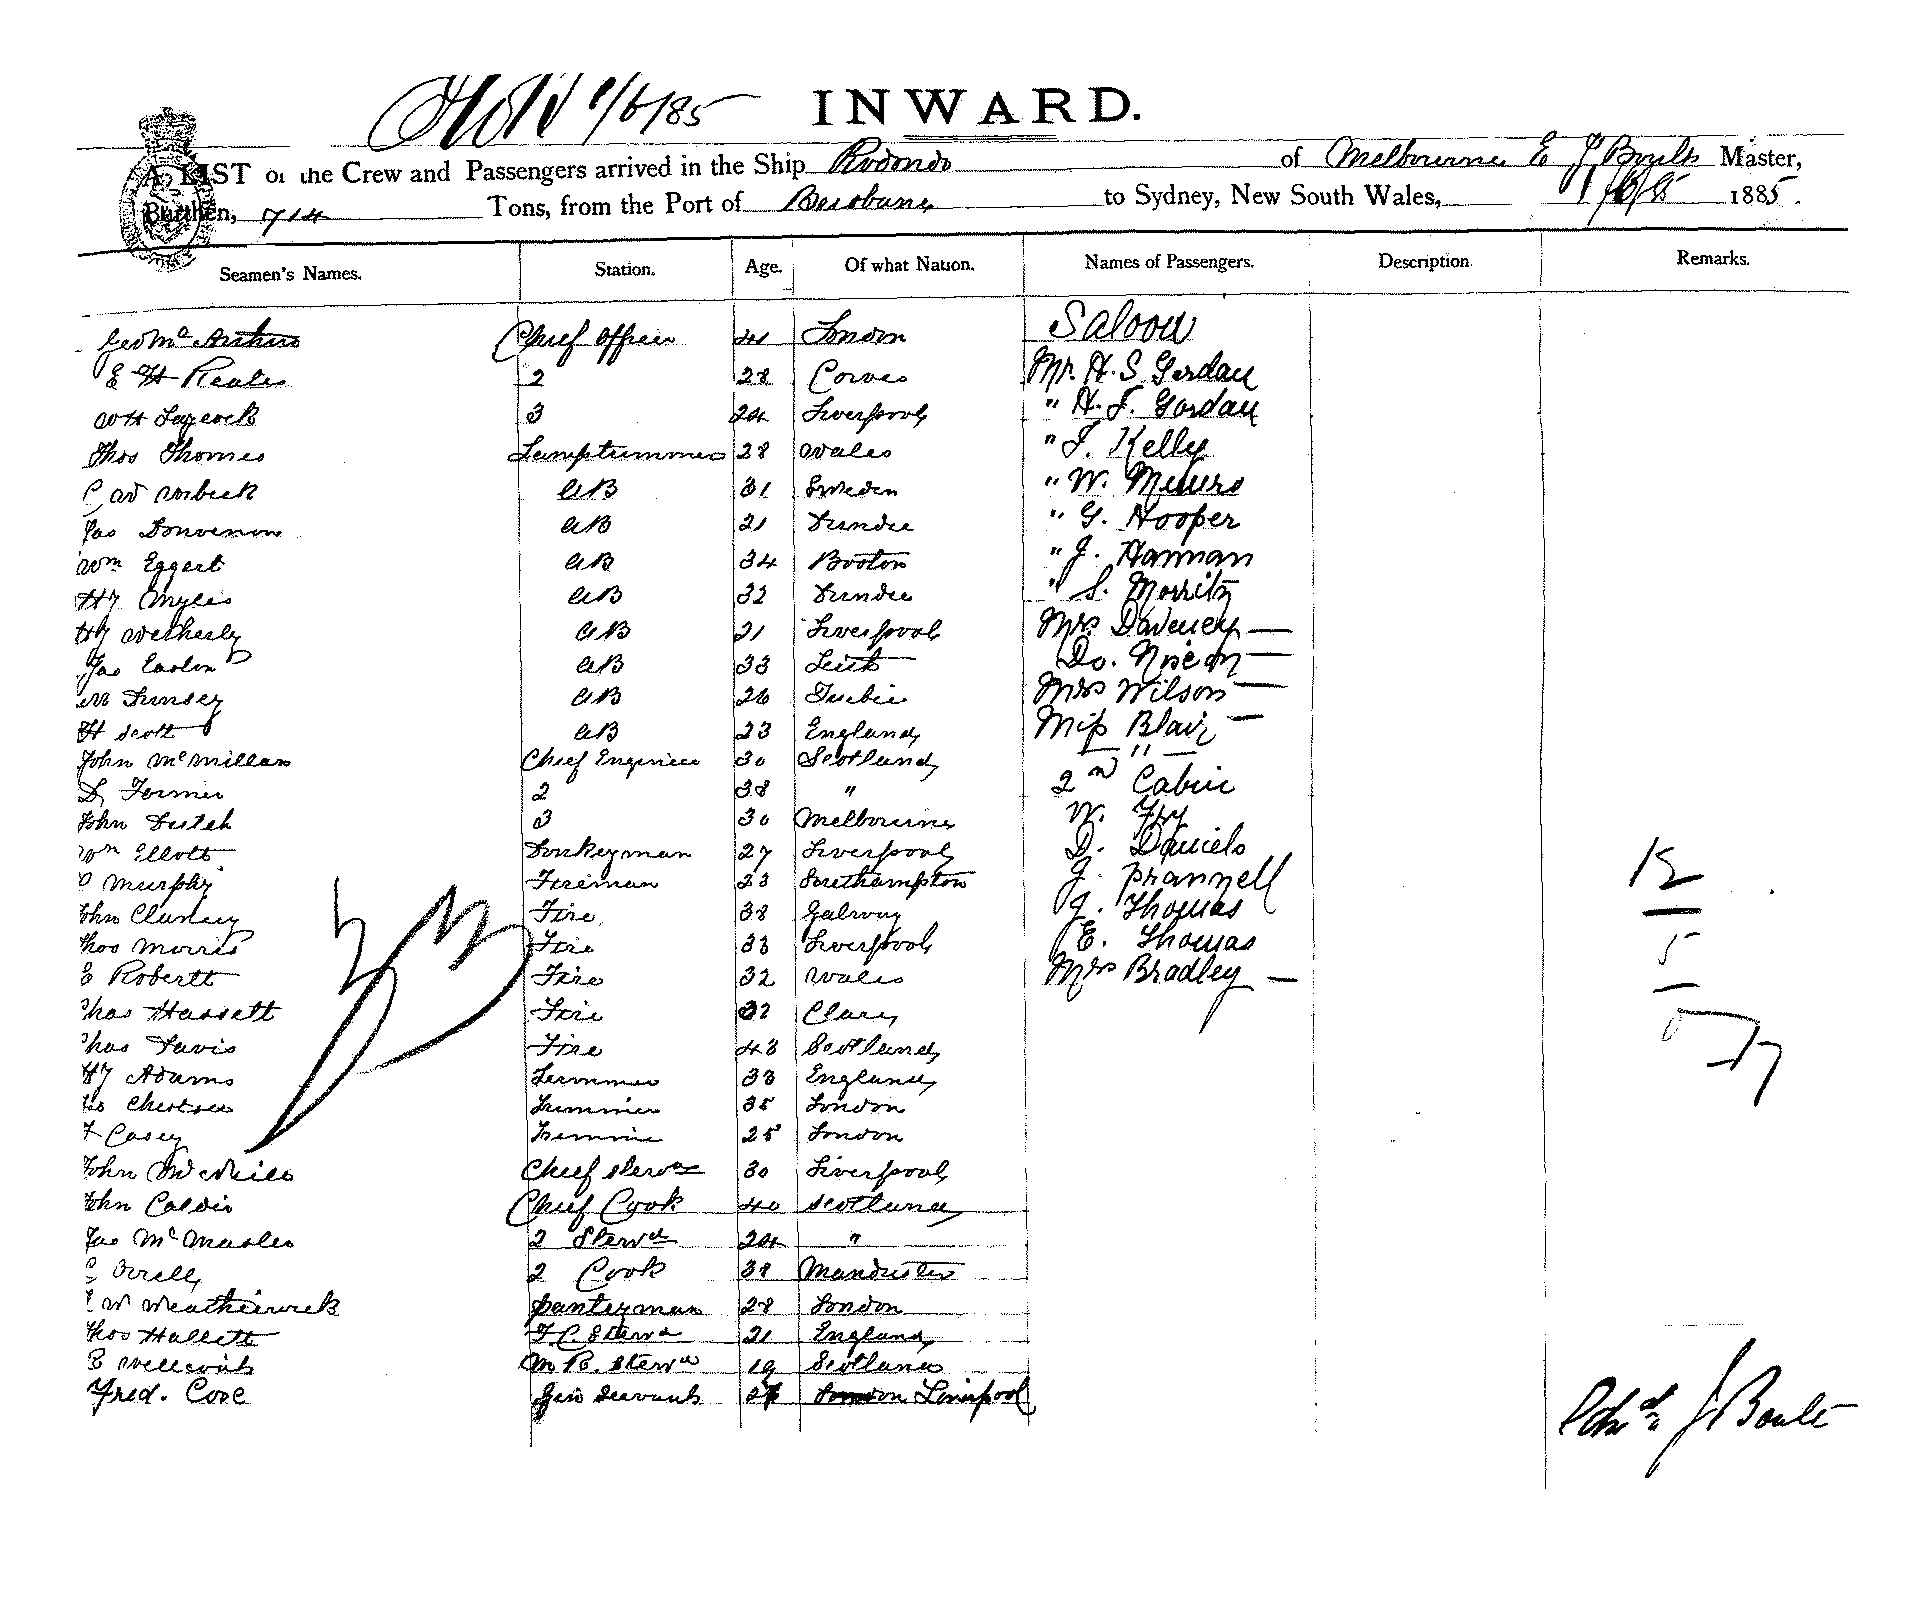 1/6/85 INWARD.
A LIST of the Crew and Passengers arrived in the Ship Rodondo of Melbourne E J Boult Master,
Burthen, 714 Tons, from the Port of Brisbane to Sydney, New South Wales, 1/6/85 1885.
Seamen's Names. Station. Age. Of what Nation. Names of Passengers. Description. Remarks.
Geo Mc Arthur Chief Officer 41 London Saloon
E H Keales 2 28 Cowes Mr. H. S. Gordau
WH Laycock 3 24 Liverpool " H. F. Gordau
Thos Thomes Lamptrimmer 28 Wales " J. Kelly
C W AB 31 Sweden " W. Munro
Jas Donvenon AB 21 Dundee " G. Hooper
Wm Eggert AB 34 Boston " J. Hannan
Hy Myles AB 32 Dundee " S. Morritz
Hy Wetherly AB 21 Liverpool Mrs Daveney —
Jas Easton AB 33 Leith Do. Nixon —
AB 26 Mrs Wilson —
H Scott AB 23 England Miss Blair —
John McMillan Chief Engineer 30 Scotland — " —
D 2 38 " 2nd Cabin
John 3 30 Melbourne W. Fry
Wm Ellott Donkeyman 27 Liverpool D. Daniels
Murphy Fireman 23 Southampton J. Prannell
John Clancey Fire 38 Galway J. Thomas
Thos Morris Fire 33 Liverpool E. Thomas
E Robertt Fire 32 Wales Mrs Bradley —
Chas Hassett Fire 32 Clare
Chas Davis Fire 43 Scotland
Hy Adams Trimmer 33 England
Trimmer 35 London
T Casey Trimmer 25 London
John McNeill Chief Stewd 30 Liverpool
John Calder Chief Cook 40 Scotland
Jas McMaster 2 Stewd 24 "
2 Cook 38 Manchester
W Weatherwick Pantryman 28 London
Thos Hallett F.C. Stewd 21 England
M R. Stewd 19 Scotland
Fred. Cove Gen Servant London Liverpool
12
5
17
Edwd J Boult